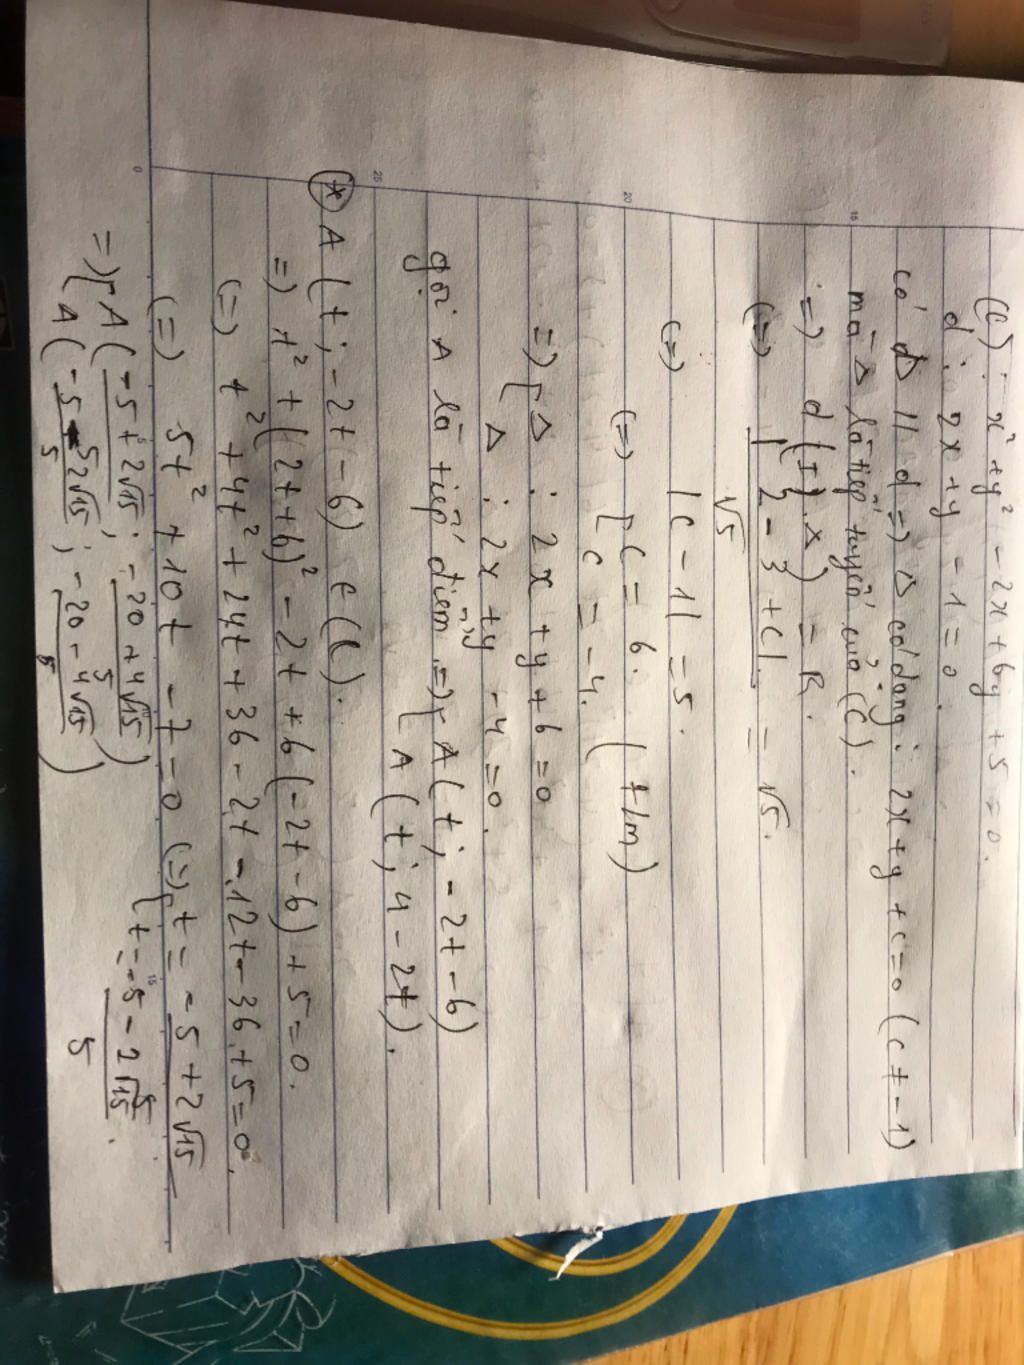 (C) : x² + y² - 2x + 6y + 5 = 0.
d : 2x + y - 1 = 0.
có Δ // d => Δ có dạng : 2x + y + c = 0 (c ≠ -1)
mà Δ là tiếp tuyến của (C).
=> d(I, Δ) = R.
(=) |2 - 3 + c| / √5 = √5.
(=) |c - 1| = 5.
(=) [ c = 6. (t/m)
c = -4.
=> [ Δ : 2x + y + 6 = 0
Δ : 2x + y - 4 = 0.
gọi A là tiếp điểm => [ A(t ; -2t - 6)
A(t ; 4 - 2t).
(*) A(t ; -2t - 6) ∈ (C).
=> t² + (2t + 6)² - 2t + 6(-2t - 6) + 5 = 0.
(=) t² + 4t² + 24t + 36 - 2t - 12t - 36 + 5 = 0.
(=) 5t² + 10t - 7 = 0 (=) [ t = (-5 + 2√15) / 5
t = (-5 - 2√15) / 5.
=> [ A((-5 + 2√15) / 5 ; (-20 + 4√15) / 5)
A((-5 - 2√15) / 5 ; (-20 - 4√15) / 5)
15
20
25
0
15